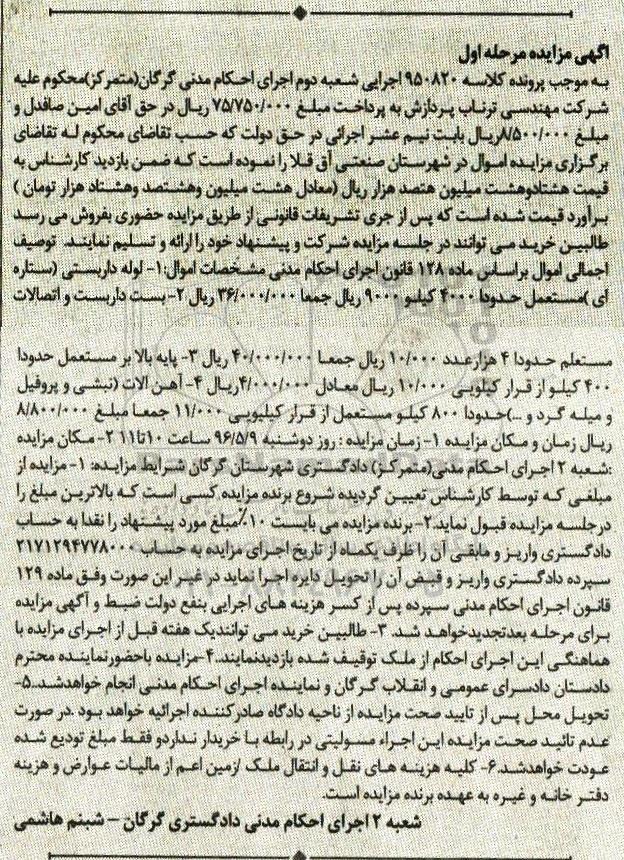 اگهی مزایده مرحله اول
به موجب پرونده کلاسه ۹۵۰۸۲۰ اجرایی شعبه دوم اجرای احکام مدنی گرگان(متمرکز)محکوم علیه
شرکت مهندسی ترناب پردازش به پرداخت مبلغ ۷۵/۷۵۰/۰۰۰ ریال در حق آقای امین صافدل و
مبلغ ۸/۵۰۰/۰۰۰ریال بابت نیم عشر اجرائی در حق دولت که حسب تقاضای محکوم له تقاضای
برگزاری مزایده اموال در شهرستان صنعتی آق قلا را نموده است که ضمن بازدید کارشناس به
قیمت هشتادوهشت میلیون هتصد هزار ریال (معادل هشت میلیون وهشتصد وهشتاد هزار تومان )
برآورد قیمت شده است که پس از جری تشریفات قانونی از طریق مزایده حضوری بفروش می رسد
طالبین خرید می توانند در جلسه مزایده شرکت و پیشنهاد خود را ارائه و تسلیم نمایند. توصیف
اجمالی اموال براساس ماده ۱۲۸ قانون اجرای احکام مدنی مشخصات اموال:۱- لوله داربستی (ستاره
ای )مستعمل حدودا ۴۰۰۰ کیلو ۹۰۰۰ ریال جمعا ۳۶/۰۰۰/۰۰۰ ریال ۲- بست داربست و اتصالات
مستعلم حدودا ۴ هزارعدد ۱۰/۰۰۰ ریال جمعا ۴۰/۰۰۰/۰۰۰ ریال ۳- پایه بالا بر مستعمل حدودا
۴۰۰ کیلو از قرار کیلویی ۱۰/۰۰۰ ریال معادل ۴/۰۰۰/۰۰۰ریال ۴- آهن آلات (نبشی و پروفیل
و میله گرد و ...)حدودا ۸۰۰ کیلو مستعمل از قرار کیلیویی ۱۱/۰۰۰ جمعا مبلغ ۸/۸۰۰/۰۰۰
ریال زمان و مکان مزایده ۱- زمان مزایده : روز دوشنبه ۹۶/۵/۹ ساعت ۱۰تا۱۱ ۲- مکان مزایده
:شعبه ۲ اجرای احکام مدنی(متمرکز) دادگستری شهرستان گرگان شرایط مزایده: ۱- مزایده از
مبلغی که توسط کارشناس تعیین گردیده شروع برنده مزایده کسی است که بالاترین مبلغ را
درجلسه مزایده قبول نماید.۲- برنده مزایده می بایست ۱۰٪مبلغ مورد پیشتهاد را نقدا به حساب
دادگستری واریز و مابقی آن را ظرف یکماه از تاریخ اجرای مزایده به حساب ۲۱۷۱۲۹۴۷۷۸۰۰۰
سپرده دادگستری واریز و قبض آن را تحویل دایره اجرا نماید در غیر این صورت وفق ماده ۱۲۹
قانون اجرای احکام مدنی سپرده پس از کسر هزینه های اجرایی بنفع دولت ضبط و آگهی مزایده
برای مرحله بعدتجدیدخواهد شد. ۳- طالبین خرید می توانندیک هفته قبل از اجرای مزایده با
هماهنگی این اجرای احکام از ملک توقیف شده بازدیدنمایند..۴-مزایده باحضورنماینده محترم
دادستان دادسرای عمومی و انقلاب گرگان و نماینده اجرای احکام مدنی انجام خواهدشد..۵-
تحویل محل پس از تایید صحت مزایده از ناحیه دادگاه صادرکننده اجرائیه خواهد بود .در صورت
عدم تائید صحت مزایده این اجراء مسولیتی در رابطه با خریدار نداردو فقط مبلغ تودیع شده
عودت خواهدشد.۶- کلیه هزینه های نقل و انتقال ملک /زمین اعم از مالیات عوارض و هزینه
دفتر خانه و غیره به عهده برنده مزایده است.
شعبه ۲ اجرای احکام مدنی دادگستری گرگان – شبنم هاشمی